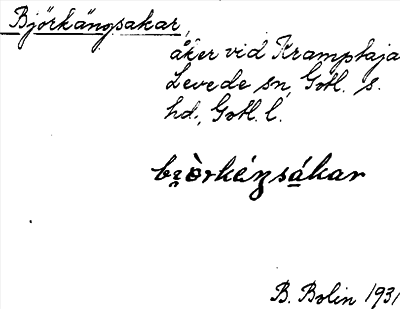 Björkängsakar,
åker vid Kramptaja
Levede sn, Gotl. s.
hd., Gotl. l.
bjòrkéŋsákar
B. Bolin 1931